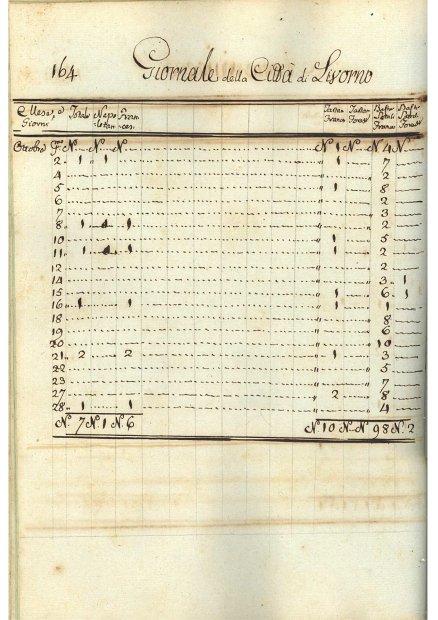 164 Giornale della Città di Livorno
Mese, e Giorni Totale Napo letan Fran cesi Franco Forest Franco Forest
Ottobre N. N N N. 1 N. N. 4 N.
2 1 1 1 7
4 2
5 1 8
6 2
7 3
8 1 1 2
10 1 5
11 1 1 1 2
12 2
14 3 1
15 1 6 1
16 1 1 1 1
18 8
19 6
20 10
21 2 2 1 3
22 5
23 7
27 2 8
28 1 1 4
N. 7 N. 1 N. 6 N. 10 N. N. 98 N. 2